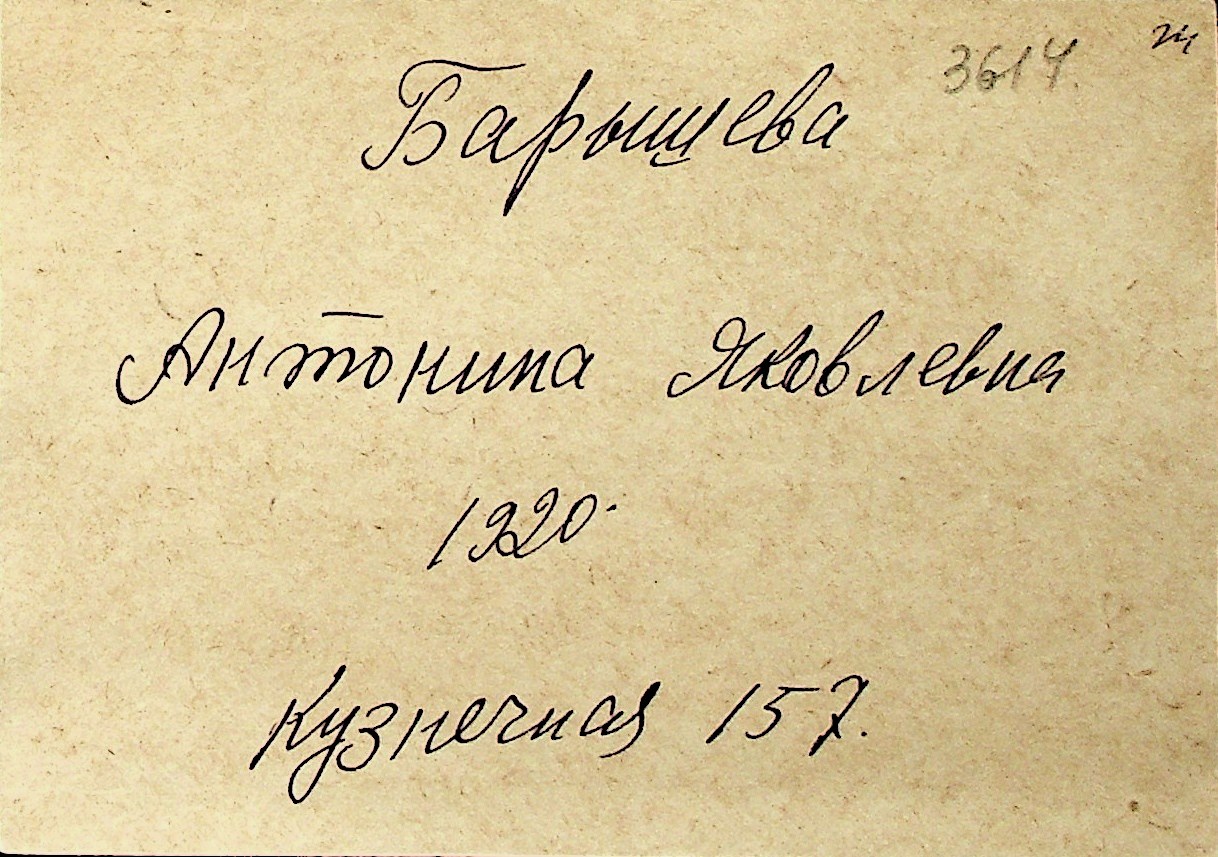 3614.
Барышева
Антонина Яковлевна
1920.
Кузнечная 157.